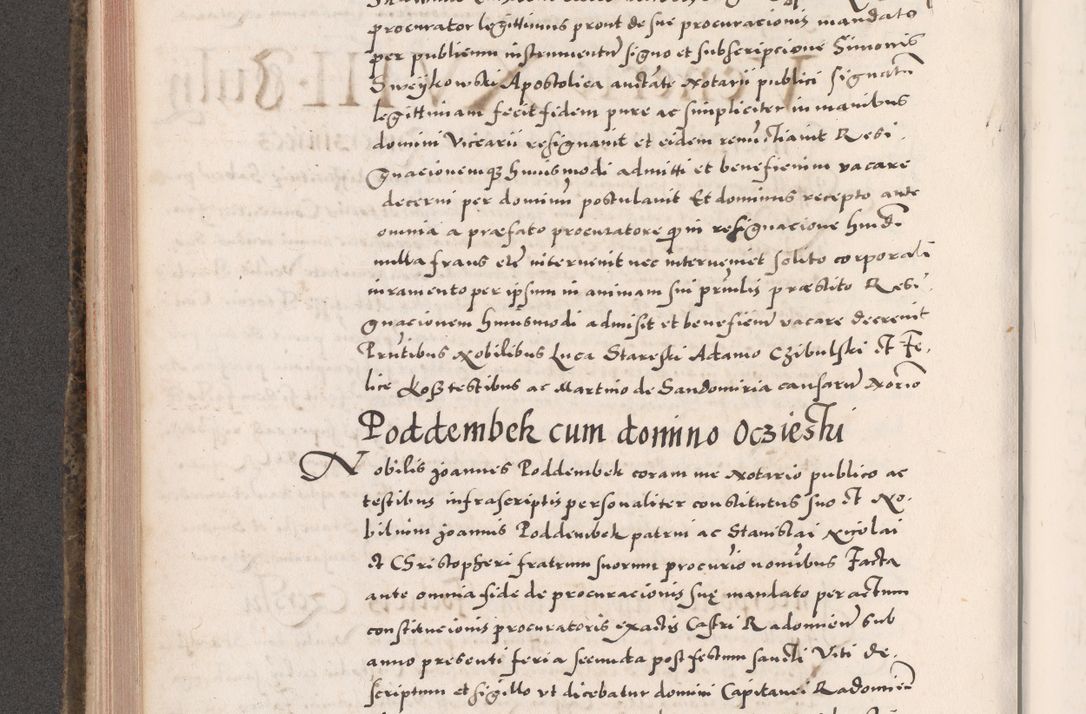 procurator legittimus prout de sue procuracionis mandato
per publicum instrumentum signo et subscripcione Simonis
Sweÿkowski Apostolica auctate Notarii publici signatū
legittimam fecit fidem pure ac simpliciter in manibus
domini Vicarii resignauit et eidem renunctiauit Resi
gnacionemqȝ huiusmodi admitti et beneficium vacare
decerni per dominū postulauit Et dominus recepto ante
omnia a præfato procuratore qȝ in resignacione hmōi
nulla fraus etc̄ interuenit nec interueniet solito corporali
iuramento per ipsum in animam sui prīnlis præstito Resi
gnacionem huiusmodi admisit et beneficiū vacare decreuit
Prn̄tibus Nobilibus Luca Stareski Adamo Czibulski et Fe
lice Kosz testibus ac Martino de Sandomiria causarū Norio
Poddembek cum domino Oczieski
Nobilis Joannes Poddembek coram me Notario publico ac
testibus infrascriptis personaliter constitutus suo et No
bilium Joannis Poddembek patrui ac Stanislai Nicolai
et Christopheri fratrum suorum procurio nomībus Facta
ante omnia fide de procuracionis suę mandato per actum
constitucionis procuratoris exactis Castri Radomien̄ sub
anno presenti feria secunda post festum sancti Viti de
scriptum et sigillo vt dicebatur domini Capitanei Radomien̄